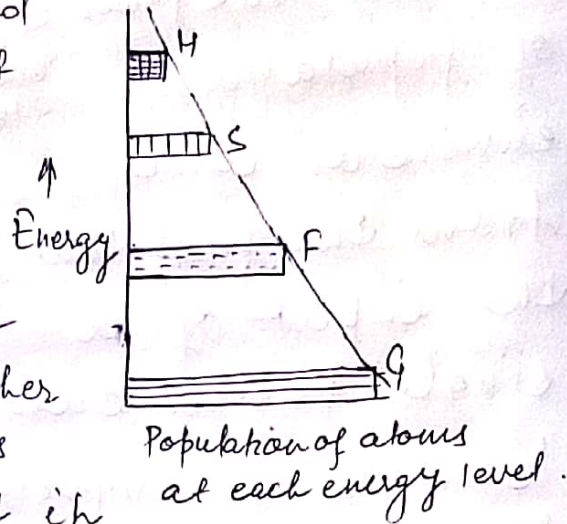 H
S
↑
Energy
F
G
Population of atoms
at each energy level.